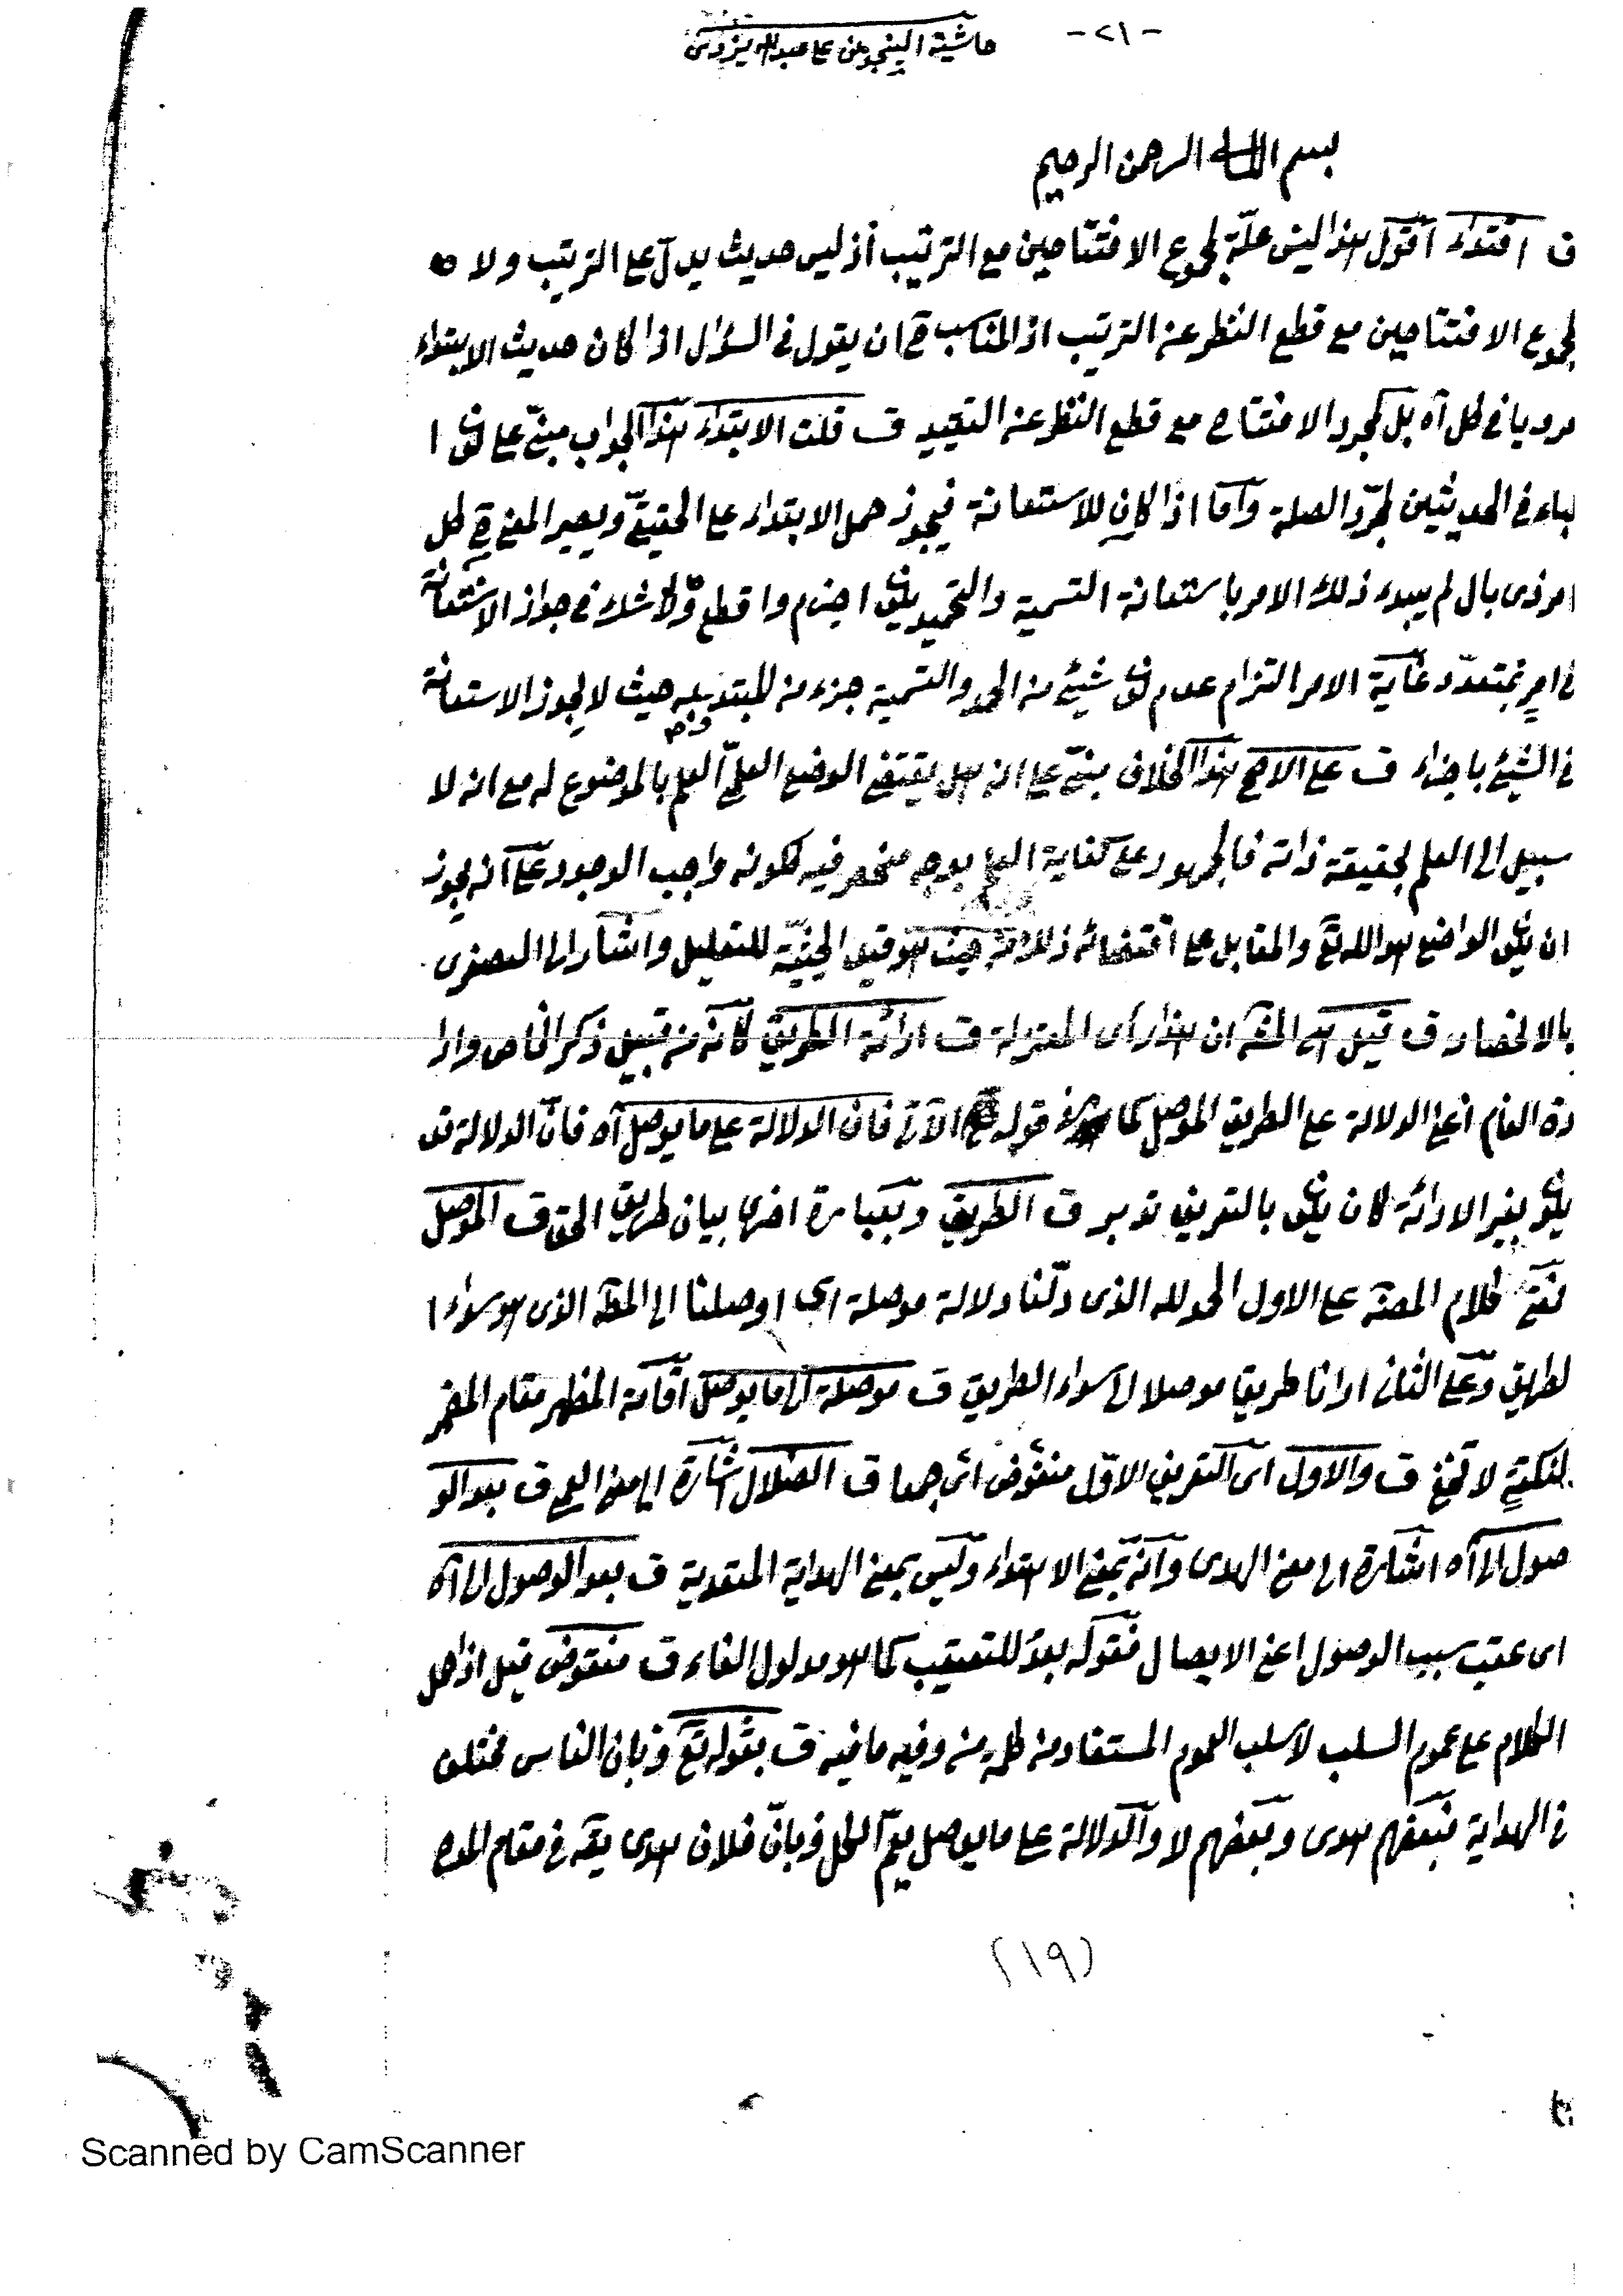 -٢١- حاشية البنجوينى على عبدالله يزدى
بسم الله الرحمن الرحيم
ق اقتداء اقول هذا ليس علّة لمجموع الافتتاحين مع الترتيب اذ ليس حديث يدلّ على الترتيب ولا
لمجموع الافتتاحين مع قطع النظر عنه الترتيب اذ المناسب ح ان يقول فى السؤال اذا كان حديث الابتداء
مرويا فى كل آه بل لمجرد الافتتاح مع قطع النظر عنه التقييد ق قلت الابتداء هذا الجواب مبنىّ على كون ا
لباء فى الحديثين لمجرّد الصلة وامّا اذا كان للاستعانة فيجوز حمل الابتداء على الحقيقىّ ويصير المعنى ح كل
امر ذى بال لم يبدء ذلك الامر باستعانة التسمية والتحميد يكون اجذم واقطع ولا شك فى جواز الاستعانة
فى امرٍ بمتعدّد غاية الامر التزام عدم كون شيئ من الحمد والتسمية جزء من المبتدء به حيث لا يجوز الاستعانة
فى الشيئ باجزاء ق على الاصح هذا الخلاف مبنىّ على انه هل يقتضى الوضع العلمىّ العلم بالموضوع له مع انه لا
سبيل الى العلم بحقيقة ذاته فالجمهور على كفاية العلم بوجه منحصر فيه ككونه واجب الوجود على انه يجوز
ان يكون الواضع هو الله تع والمقابل على اقتضائه ذلك حيث هو قيد الحيثيّة للتعليل واشار الى الصغرى
بالانحصار ق قيل هى المشهور ان هذا رأى المعتزلة ق ارائة الطريق كانّه من قبيل ذكر الخاص وارا
دة العام اعنى الدلالة على الطريق الموصل كما قوله الآتى فان الدلالة على ما يوصل آه فانّ الدلالة قد
يكون بغير الارائة كان يكون بالتعريف تدبر ق الطريق وبعبارة اخرى بيان طريق الحق ق الموصل
فمعنى كلام المصنف على الاول الحمد لله الذى دلّنا دلالة موصلة اى اوصلنا الى المط الذى هو سواء ا
لطريق وعلى الثانى ارانا طريقا موصلا الى سواء الطريق ق موصلة الى ما يوصل اقامة المظهر مقام المضمر
لنكتةٍ لا تخفى ق والاول اى التعريف الاوّل منقوض اى جمعا ق الضلال اشارة الى معنى العمى ق بعد الو
صول الى آه اشارة الى معنى الهدى وانّه بمعنى الاهتداء وليس بمعنى الهداية المتعدية ق بعد الوصول الى آه
اى عقب سبب الوصول اعنى الايصال فقوله بعدُ للتعقيب كما هو مدلول الفاء ق منقوض قيل اذا حمل
الكلام على عموم السلب لا سلب العموم المستفاد من كلمة من وفيه ما فيه ق بقوله تع وبان الناس مختلف
فى الهداية فبعضهم هدى وبعضهم لا والدلالة على ما يوصل يعمّ الكل وبانّ فلان هدى يقه فى مقام المدح
(١٩)
Scanned by CamScanner